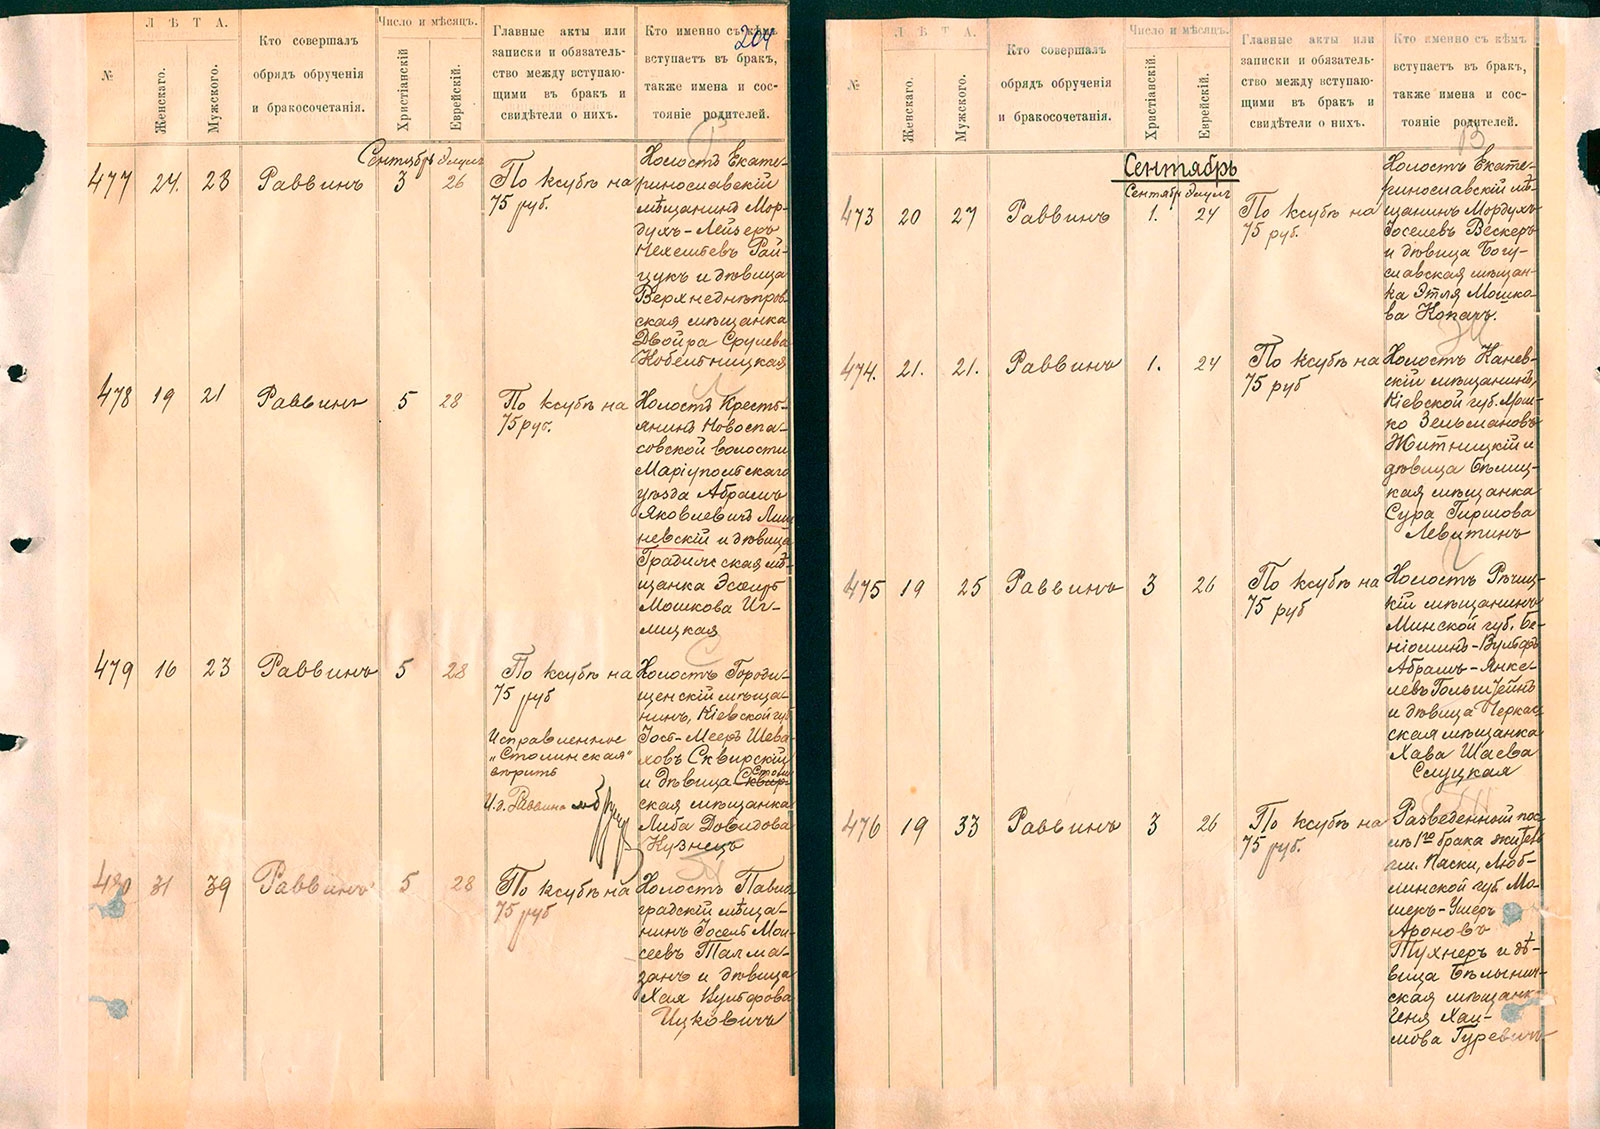 204
№
Л Ѣ Т А.
Женскаго.
Мужского.
Кто совершалъ
обрядъ обрученія
и бракосочетанія.
Число и мѣсяцъ.
Христіанскій
Еврейскій.
Главные акты или
записки и обязатель-
ство между вступаю-
щими въ бракъ и
свидѣтели о нихъ.
Кто именно съ кѣмъ
вступаетъ въ бракъ,
также имена и сос-
тояніе родителей.
Сентябрь Элулъ
477 24. 23 Раввинъ 3 26 По ксубѣ на
75 руб.
Холостъ Екате-
ринославскій
мѣщанинъ Мор-
духъ-Лейзеръ
Нехемьевъ Рай-
цукъ и дѣвица
Верхнеднѣпров-
ская мѣщанка
Двойра Срулева
Кобельницкая
478 19 21 Раввинъ 5 28 По ксубѣ на
75 руб.
Холостъ Кресть-
янинъ Новоспа-
совской волости
Маріупольскаго
уѣзда Абрамъ
Яковлевичъ
невскій и дѣвица
Градижская мѣ-
щанка Эсѳирь
Мошкова Иг-
лицкая
479 16 23 Раввинъ 5 28 По ксубѣ на
75 руб
Исправленное
„Столинская"
вѣрить
И.д. Раввина
Холостъ Городи-
щенскій мѣща-
нинъ, Кіевской губ
Іосъ-Мееръ Шева-
ховъ Сквирскій
и дѣвица Столин-
ская мѣщанка
Либа Довидова
Кузнецъ
480 31 39 Раввинъ 5 28 По ксубѣ на
75 руб
Холостъ Павло-
градскій мѣща-
нинъ Іосель Мои-
сеевъ Талма-
занъ и дѣвица
Хая Вульфова
Ицковичъ
№
Л Ѣ Т А.
Женскаго.
Мужского.
Кто совершалъ
обрядъ обрученія
и бракосочетанія.
Число и мѣсяцъ.
Христіанскій.
Еврейскій.
Главные акты или
записки и обязатель-
ство между вступаю-
щими въ бракъ и
свидѣтели о нихъ.
Кто именно съ кѣмъ
вступаетъ въ бракъ,
также имена и сос-
тояніе родителей.
Сентябрь
Сентябрь Элулъ
473 20 27 Раввинъ 1. 24 По ксубѣ на
75 руб.
Холостъ Екате-
ринославскій мѣ-
щанинъ Мордухъ
Іоселевъ Вескеръ
и дѣвица Богу-
славская мѣщан-
ка Этля Мошко-
ва Копаръ.
474. 21. 21. Раввинъ 1. 24 По ксубѣ на
75 руб
Холостъ Канев-
скій мѣщанинъ,
Кіевской губ. Мош-
ко Зельмановъ
Житницкій и
дѣвица Бѣлиц-
кая мѣщанка
Сура Гиршова
Левитинъ
475 19 25 Раввинъ 3 26 По ксубѣ на
75 руб
Холостъ Рѣчиц-
кій мѣщанинъ
Минской губ. Бе-
ніоминъ-Вульфъ
Абрамъ-Янке-
левъ Гольштейнъ
и дѣвица Черкас-
ская мѣщанка
Хава Шаева
Слуцкая
476 19 33 Раввинъ 3 26 По ксубѣ на
75 руб.
Разведенный пос-
лѣ 1го брака житель
гм. Паски, Любл-
линской губ Мо-
шекъ-Ушеръ
Ароновъ
Тухнеръ и дѣ-
вица Бѣлынич-
ская мѣщанка
Геня Хаи-
мова Гуревичъ